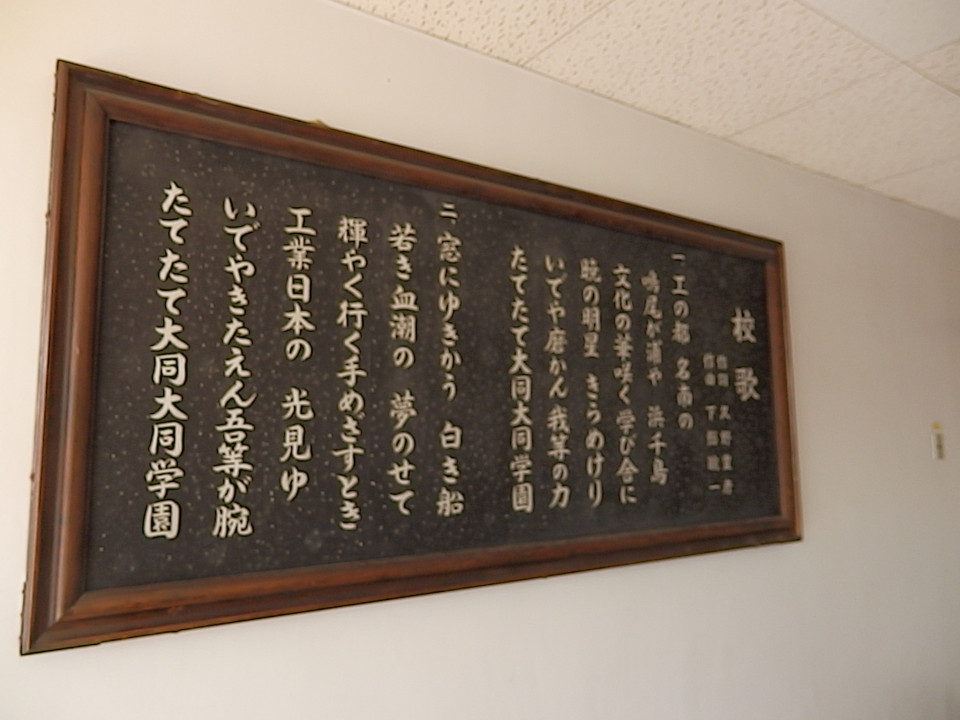 校歌
一、工の都 名南の
鳴尾が浦や 浜千鳥
文化の華咲く学び舎に
暁の明星 きらめけり
いでや磨かん 我等の力
たてたて大同大同学園
二、窓にゆきかう 白き船
若き血潮の 夢のせて
輝やく行く手めざすとき
工業日本の 光見ゆ
いでやきたえん吾等が腕
たてたて大同大同学園